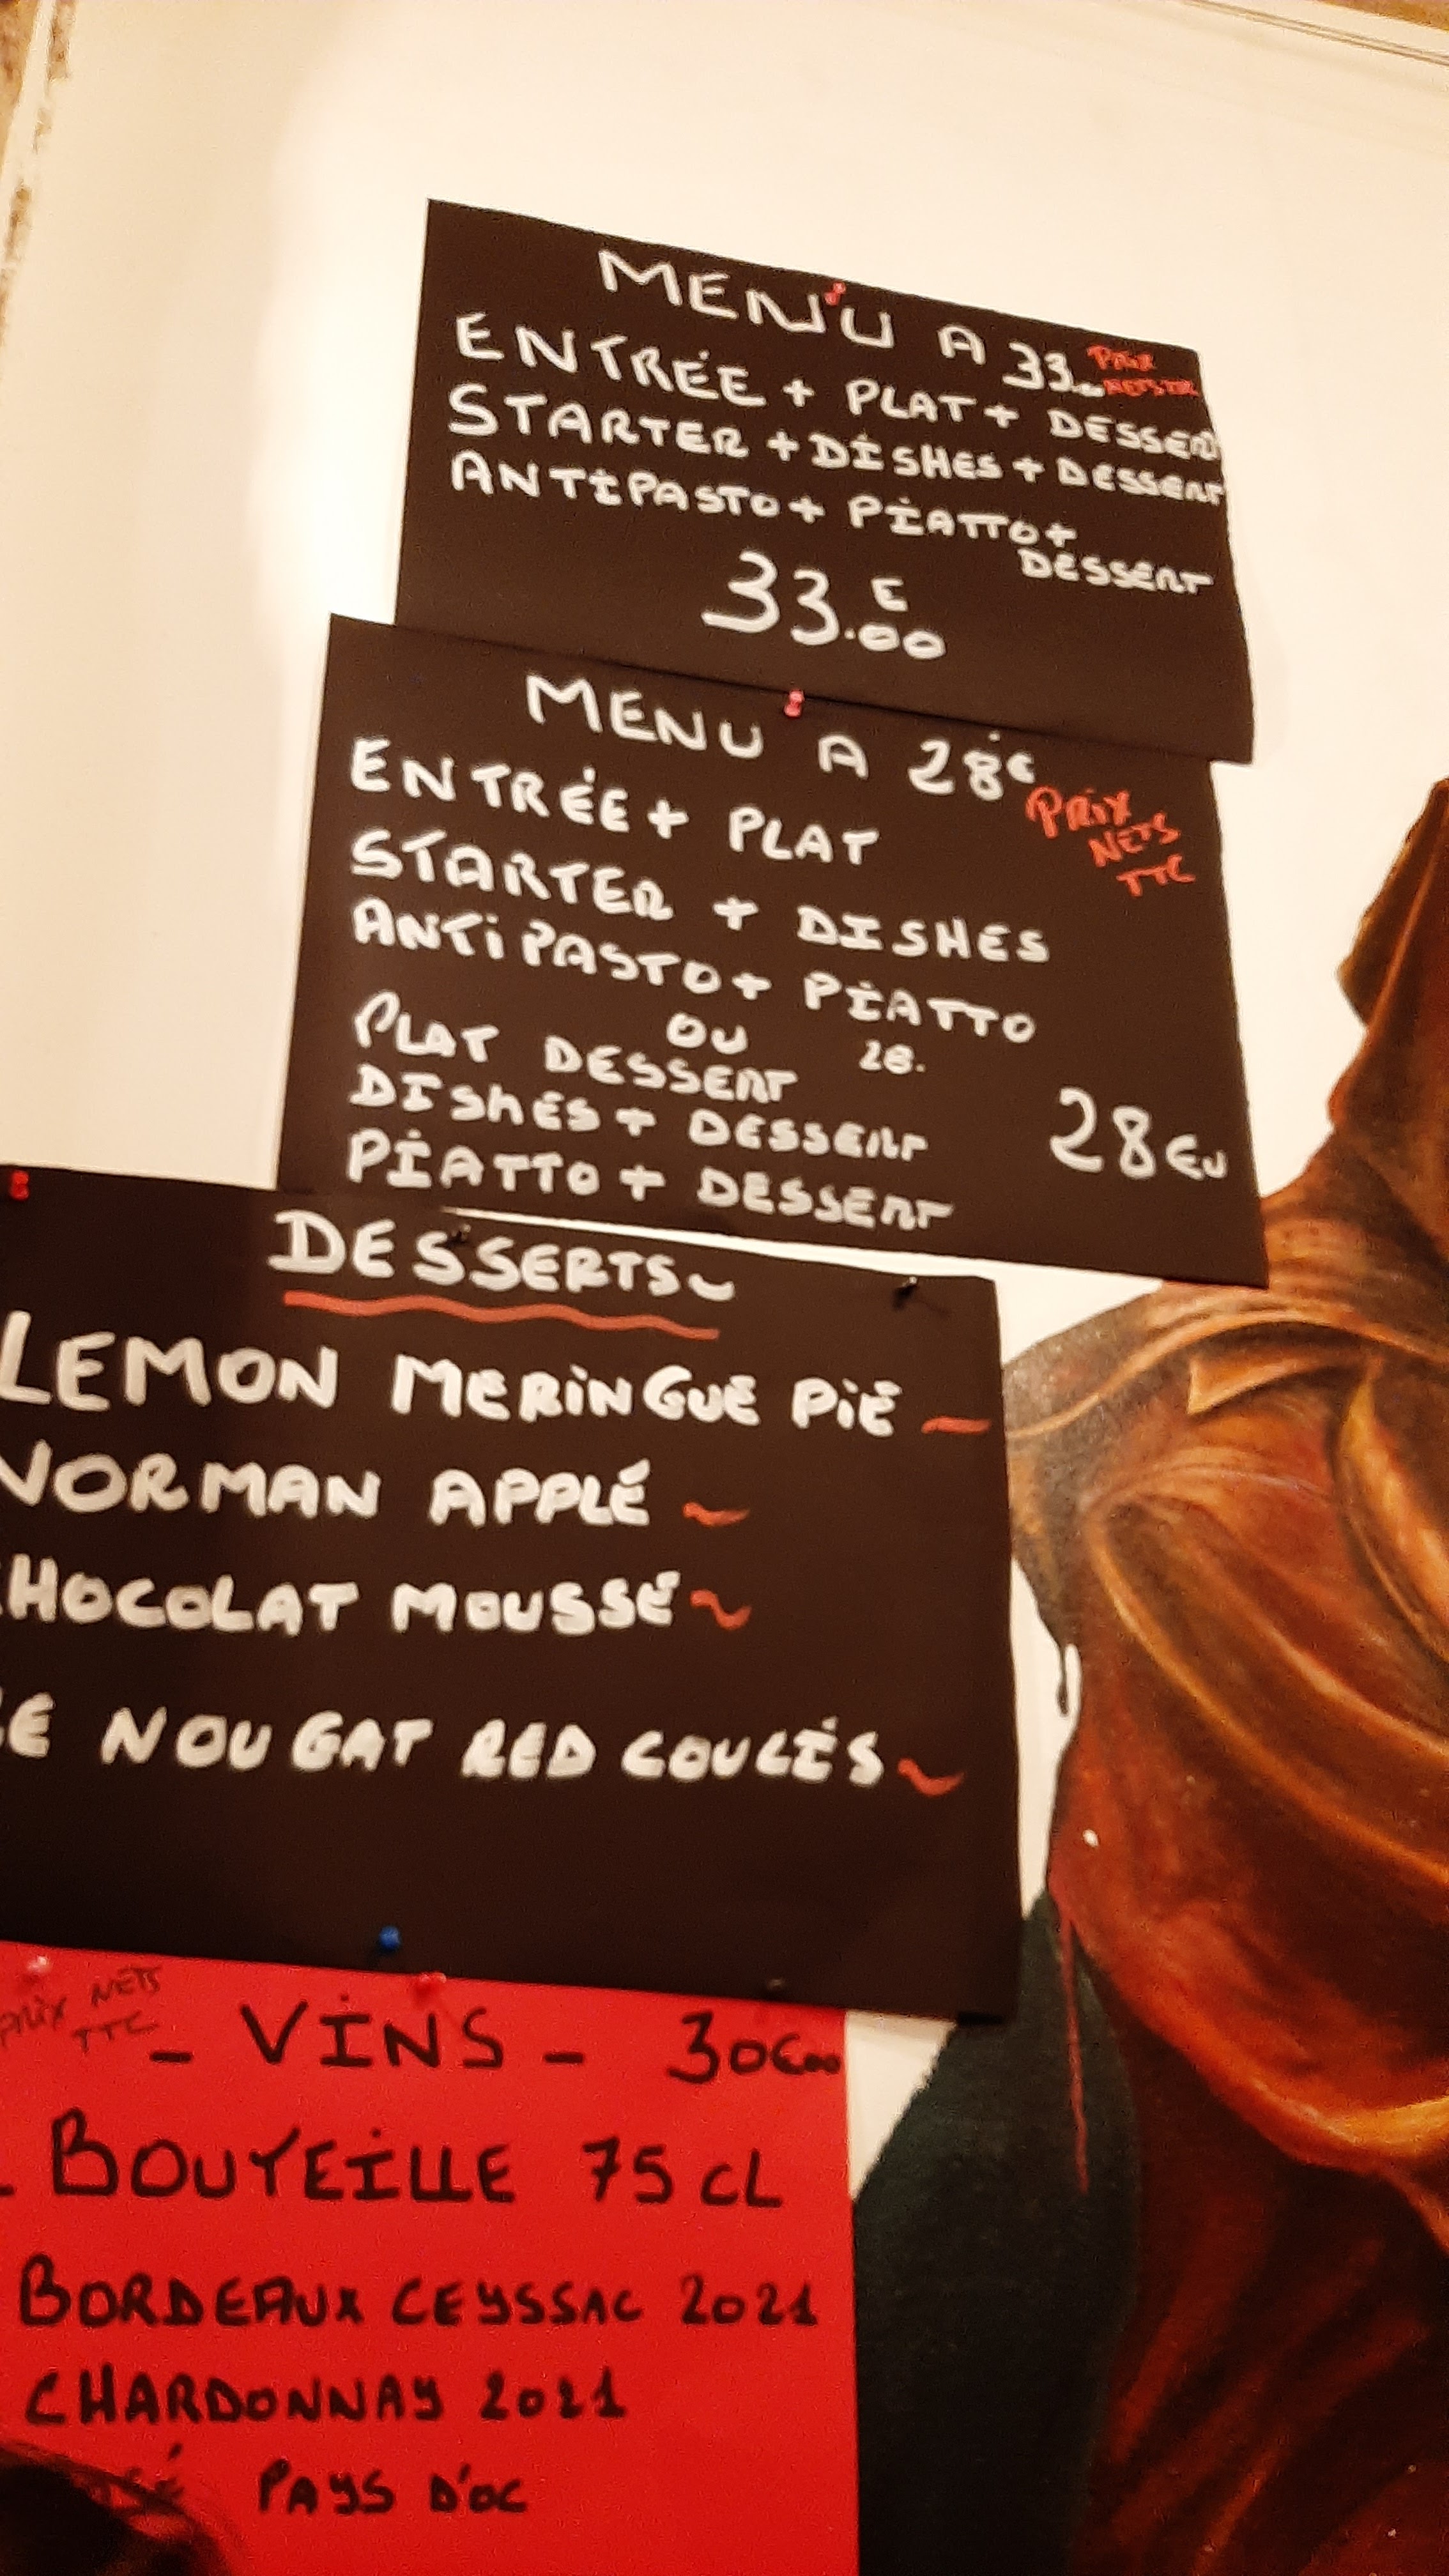 MENU A 33.00 PRIX
NETS TTC
ENTRÉE + PLAT + DESSERT
STARTER + DISHES + DESSERT
ANTIPASTO + PIATTO +
DESSERT
33.00 €
MENU A 28€
PRIX
NETS
TTC
ENTRÉE + PLAT
STARTER + DISHES
ANTIPASTO + PIATTO
OU 28.
PLAT DESSERT
DISHES + DESSERT 28 EU
PIATTO + DESSERT
DESSERTS
LEMON MERINGUE PIE
NORMAN APPLÉ
CHOCOLAT MOUSSE
NOUGAT RED COULIS
PRIX NETS
TTC
- VINS - 30€00
BOUTEILLE 75 CL
BORDEAUX CEYSSAC 2021
CHARDONNAY 2021
PAYS D'OC